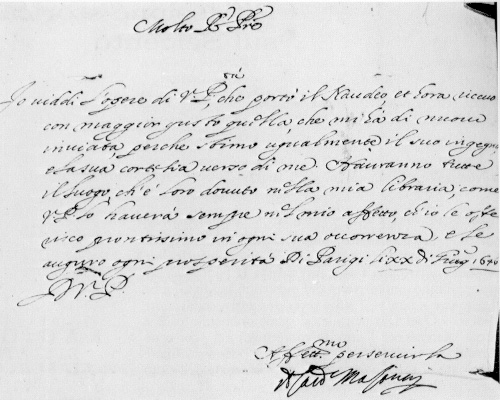 Molto R.do P.re
Io viddi l'opere di V. P.tà, che portò il Naudeo et hora ricevo
con maggior gusto quella, che mi hà di nuovo
inviata, perche stimo ugualmente il suo ingegno
e la sua cortesia verso di me. Hauranno tutte
il luogo, ch'è loro dovuto nella mia libraria, come
V. P. lo haverà sempre nel mio affetto, ch'io le offe
risco prontissimo in ogni sua occorrenza, e le
auguro ogni prosperità Di Parigi li xx di 1646
V. P.
Affett.mo per servirla
Il Card. Mazarini